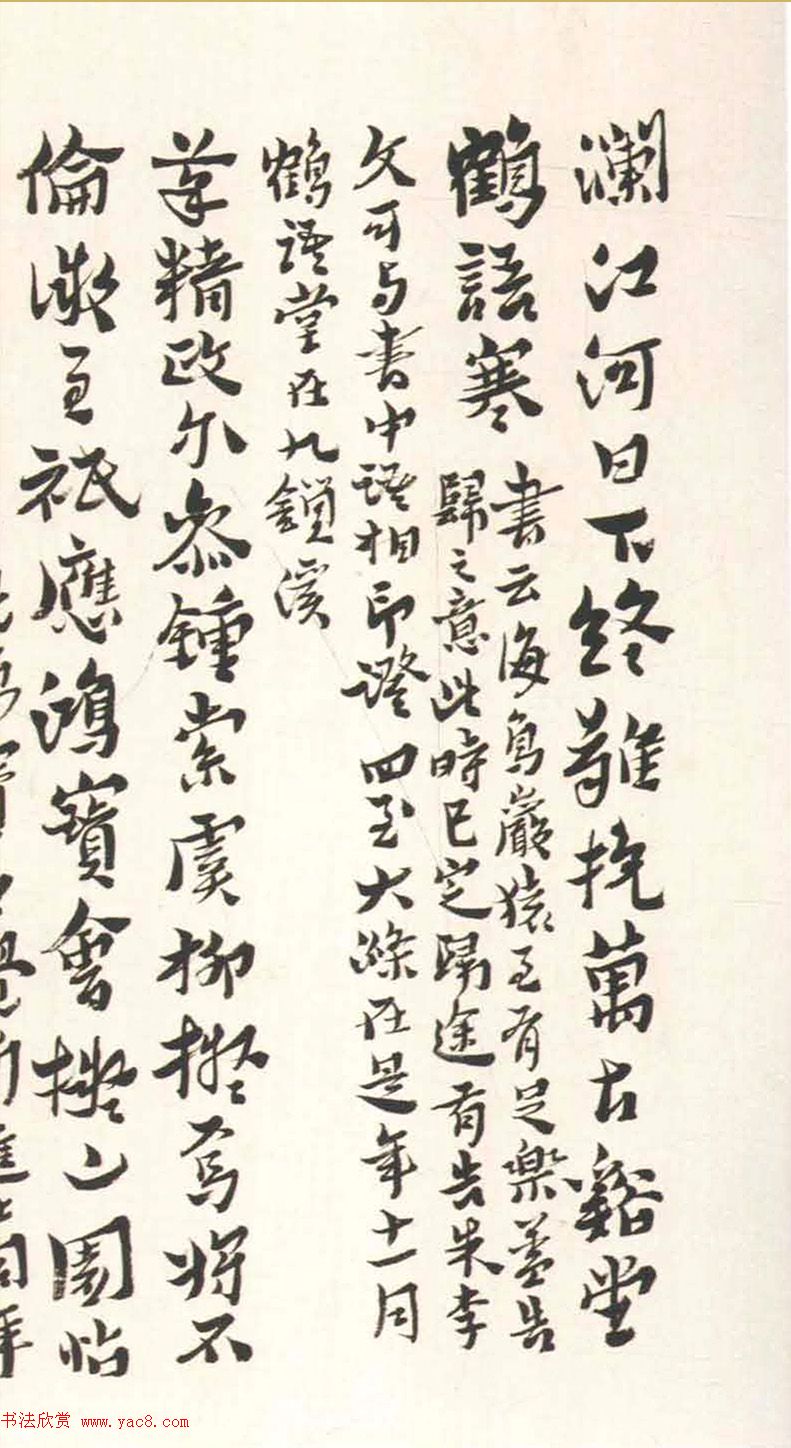 瀾江河日下終難挽萬古谿堂
鶴語寒
書云海鳥巖猿至有足樂蓋告
歸之意此時已定歸途有告朱李
文可与書中語相印證四至大滌在是年十一月
鶴語堂在九鎖溪
筆精政尔参鍾索虞柳擬焉將不
倫儆至祇應鴻寶會擬山園帖
书法欣赏 www.yac8.com